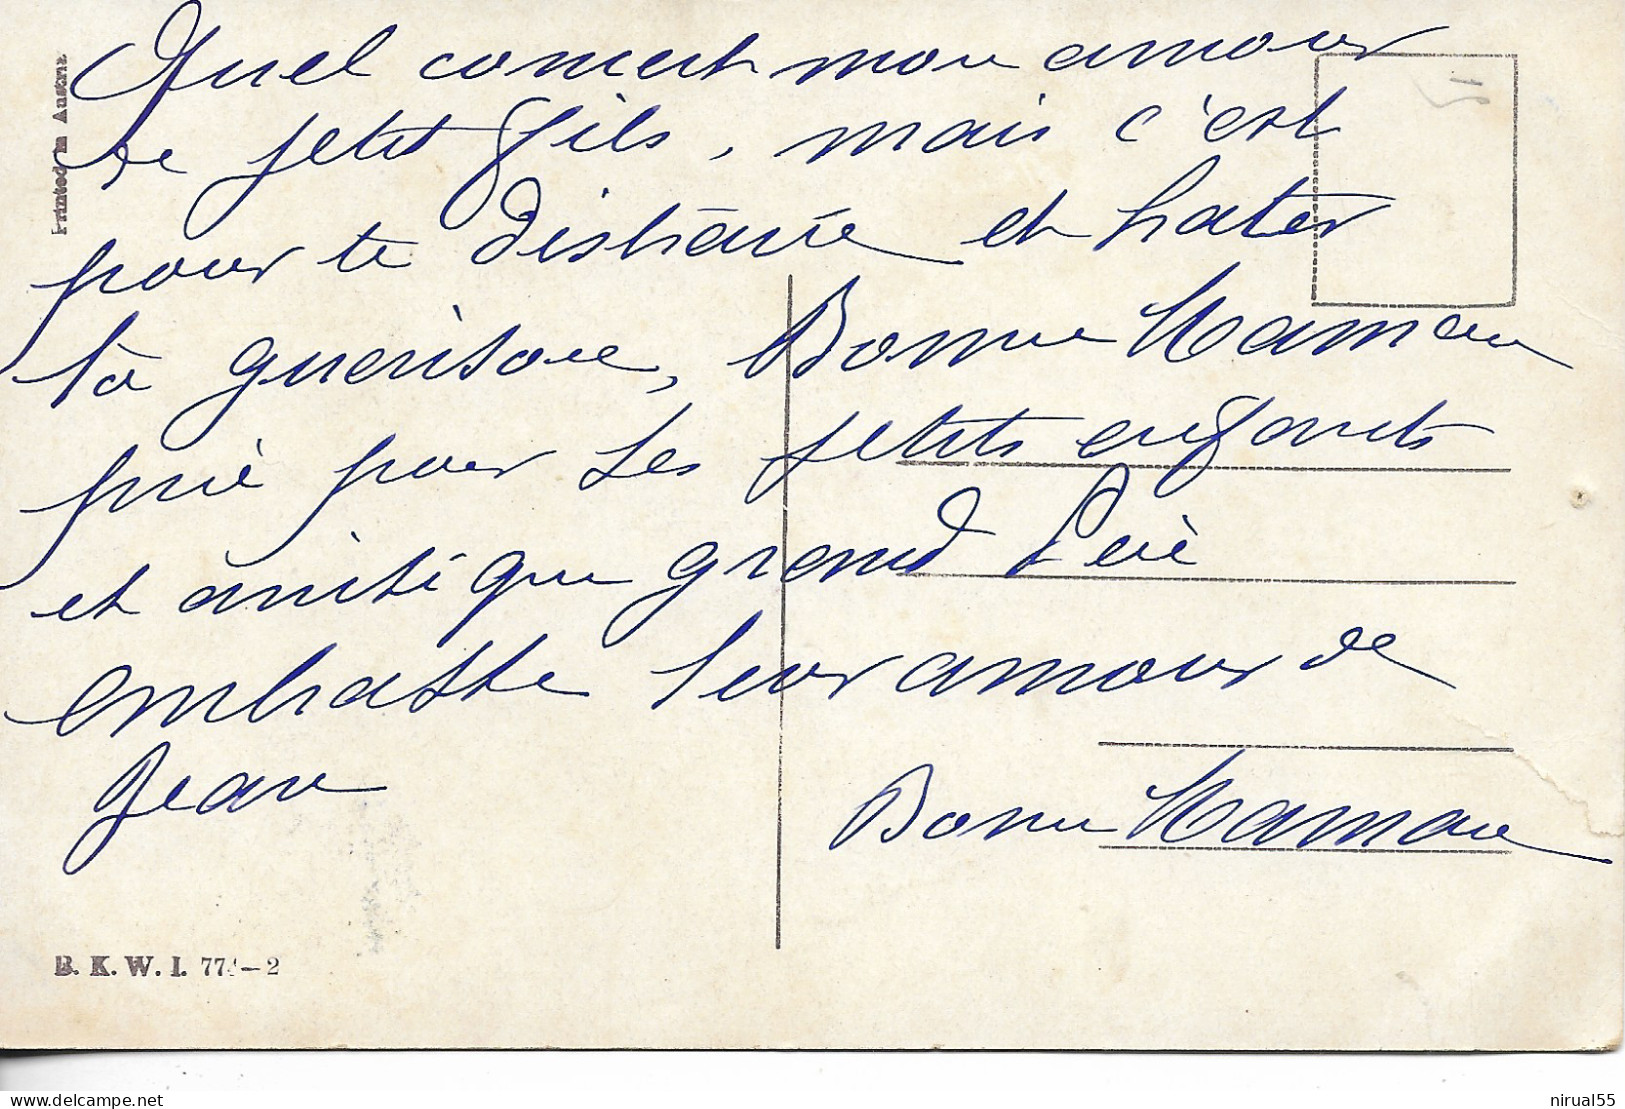 Quel concert mon amour
de petit fils, mais c'est
pour te distraire et hater
ta guerison, Bonne Maman
prie pour les petits enfants
et ainsi que grand Père
embrasse leur amour de
Jean
Bonne Maman
Printed in Austria
B. K. W. I. 77 -2
delcampe.net
nirual55